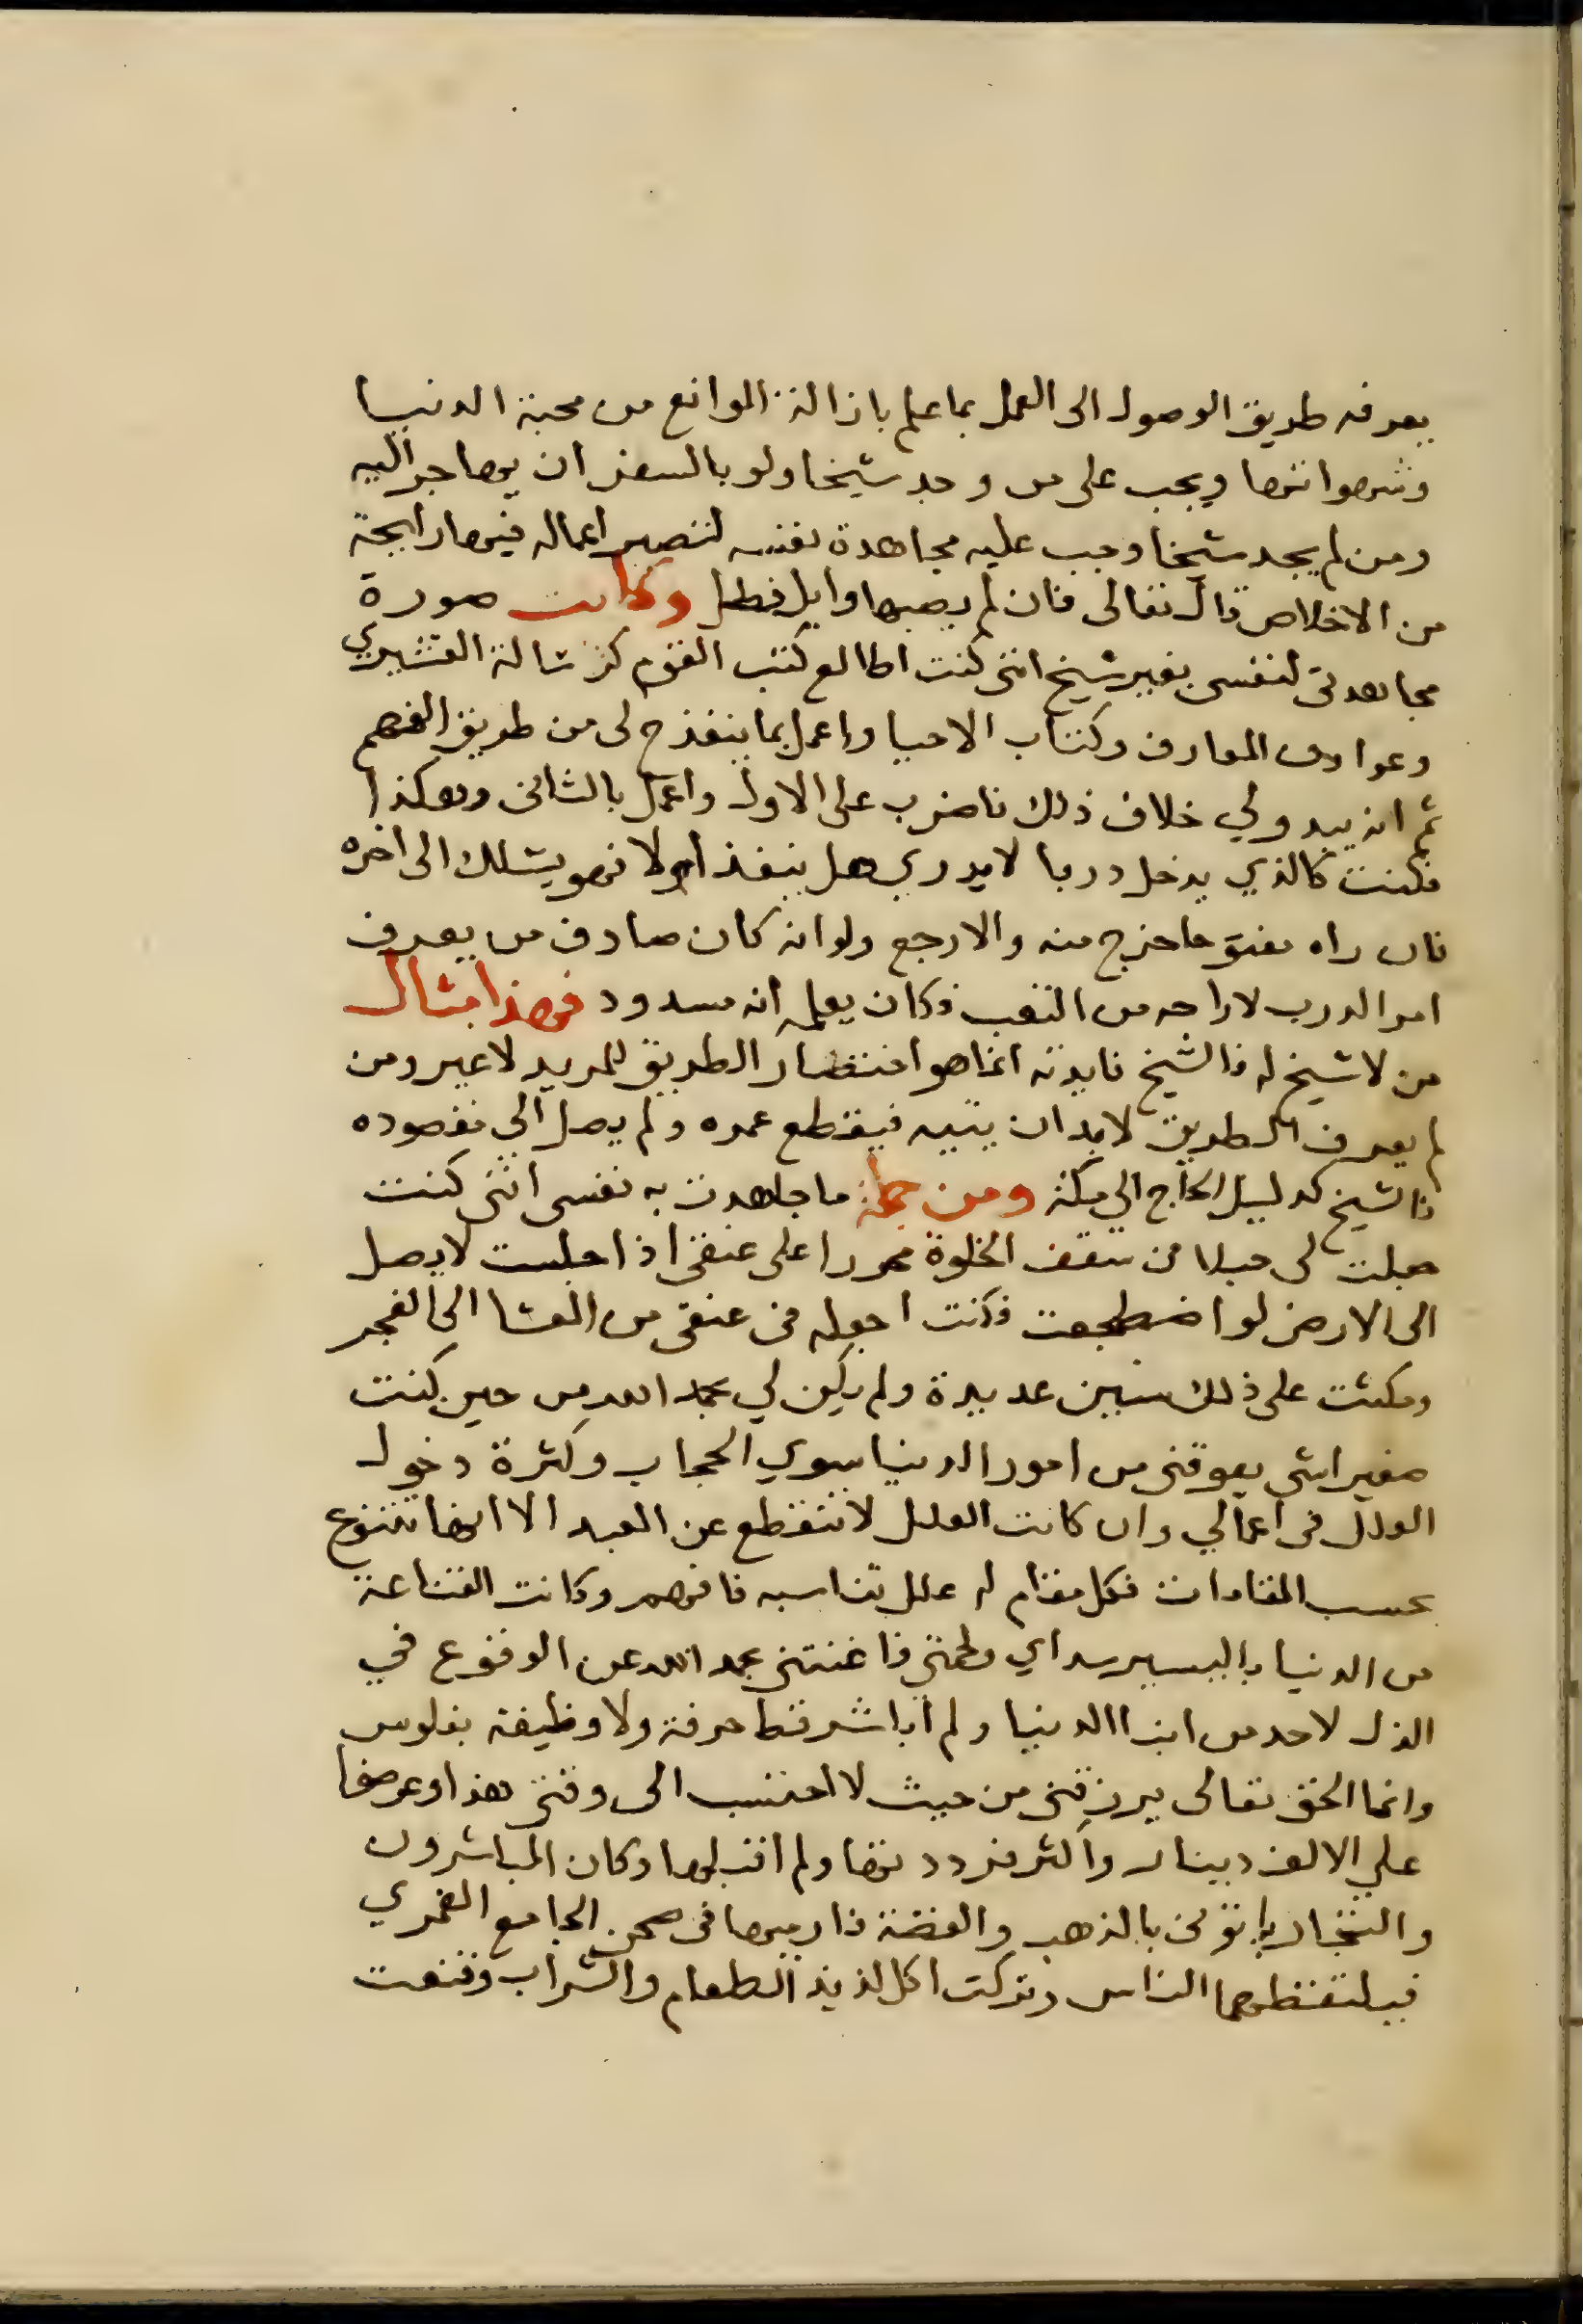 يعرفه طريق الوصول الى العمل بما علم بازالة الموانع من محبة الدنيا
وشهواتها ويجب على من وجد شيخا ولو بالسفر ان يهاجر اليه
ومن لم يجد شيخا وجب عليه مجاهدة نفسه لتصير اعماله فيها رايحة
من الاخلاص قال تعالى فان لم يصبها وابل فطل وكانت صورة
مجاهدتى لنفسى بغير شيخ اننى كنت اطالع كتب القوم كرسالة القشيري
وعوارف المعارف وكتاب الاحيا واعمل بما ينقدح لى من طريق الفهم
ثم انه يبدو لي خلاف ذلك فاضرب على الاول واعمل بالثانى وهكذا
فكنت كالذي يدخل دربا لا يدري هل ينفذ ام لا فهو يسلك الى اخره
فان راه مفتوحا خرج منه والا رجع ولو انه كان صادف من يعرف
امر الدرب لاراحه من التعب فكان يعلمه انه مسدود فهذا مثال
من لا شيخ له فالشيخ فايدته انما هو اختصار الطريق للمريد لا غير ومن
لم يعرف الطريق لا بد ان يتيه فيقطع عمره ولم يصل الي مقصوده
فالشيخ كدليل الحاج الي مكة ومن جملة ما جاهدت به نفسى اننى كنت
جعلت لى حبلا من سقف الخلوة مجررا على عنقى اذا جلست لا يصل
الى الارض لو اضطجعت فكنت اجعله فى عنقى من العشا الي الفجر
ومكثت على ذلك سنين عديدة ولم يكن لي بحمد الله من حين كنت
صغيرا شى يعوقنى من امور الدنيا سوي الحجاب وكثرة دخول
العلل فى اعمالي وان كانت العلل لا تنقطع عن العبد الا انها تتنوع
بحسب المقامات فكل مقام له علل تناسبه فافهم وكانت القناعة
من الدنيا باليسير سداي ولحمتى فاغنتنى بحمد الله عن الوقوع في
الذل لاحد من ابنا الدنيا ولم اباشر قط حرفة ولا وظيفة بفلوس
وانما الحق تعالى يرزقنى من حيث لا احتسب الى وقتى هذا وعرضوا
علي الالف دينار واكثر فرددتها ولم اقبلها وكان المباشرون
والتجار ياتونى بالذهب والفضة فارميها فى صحن الجامع الغمري
فيلتقطها الناس وتركت اكل لذيذ الطعام والشراب وقنعت